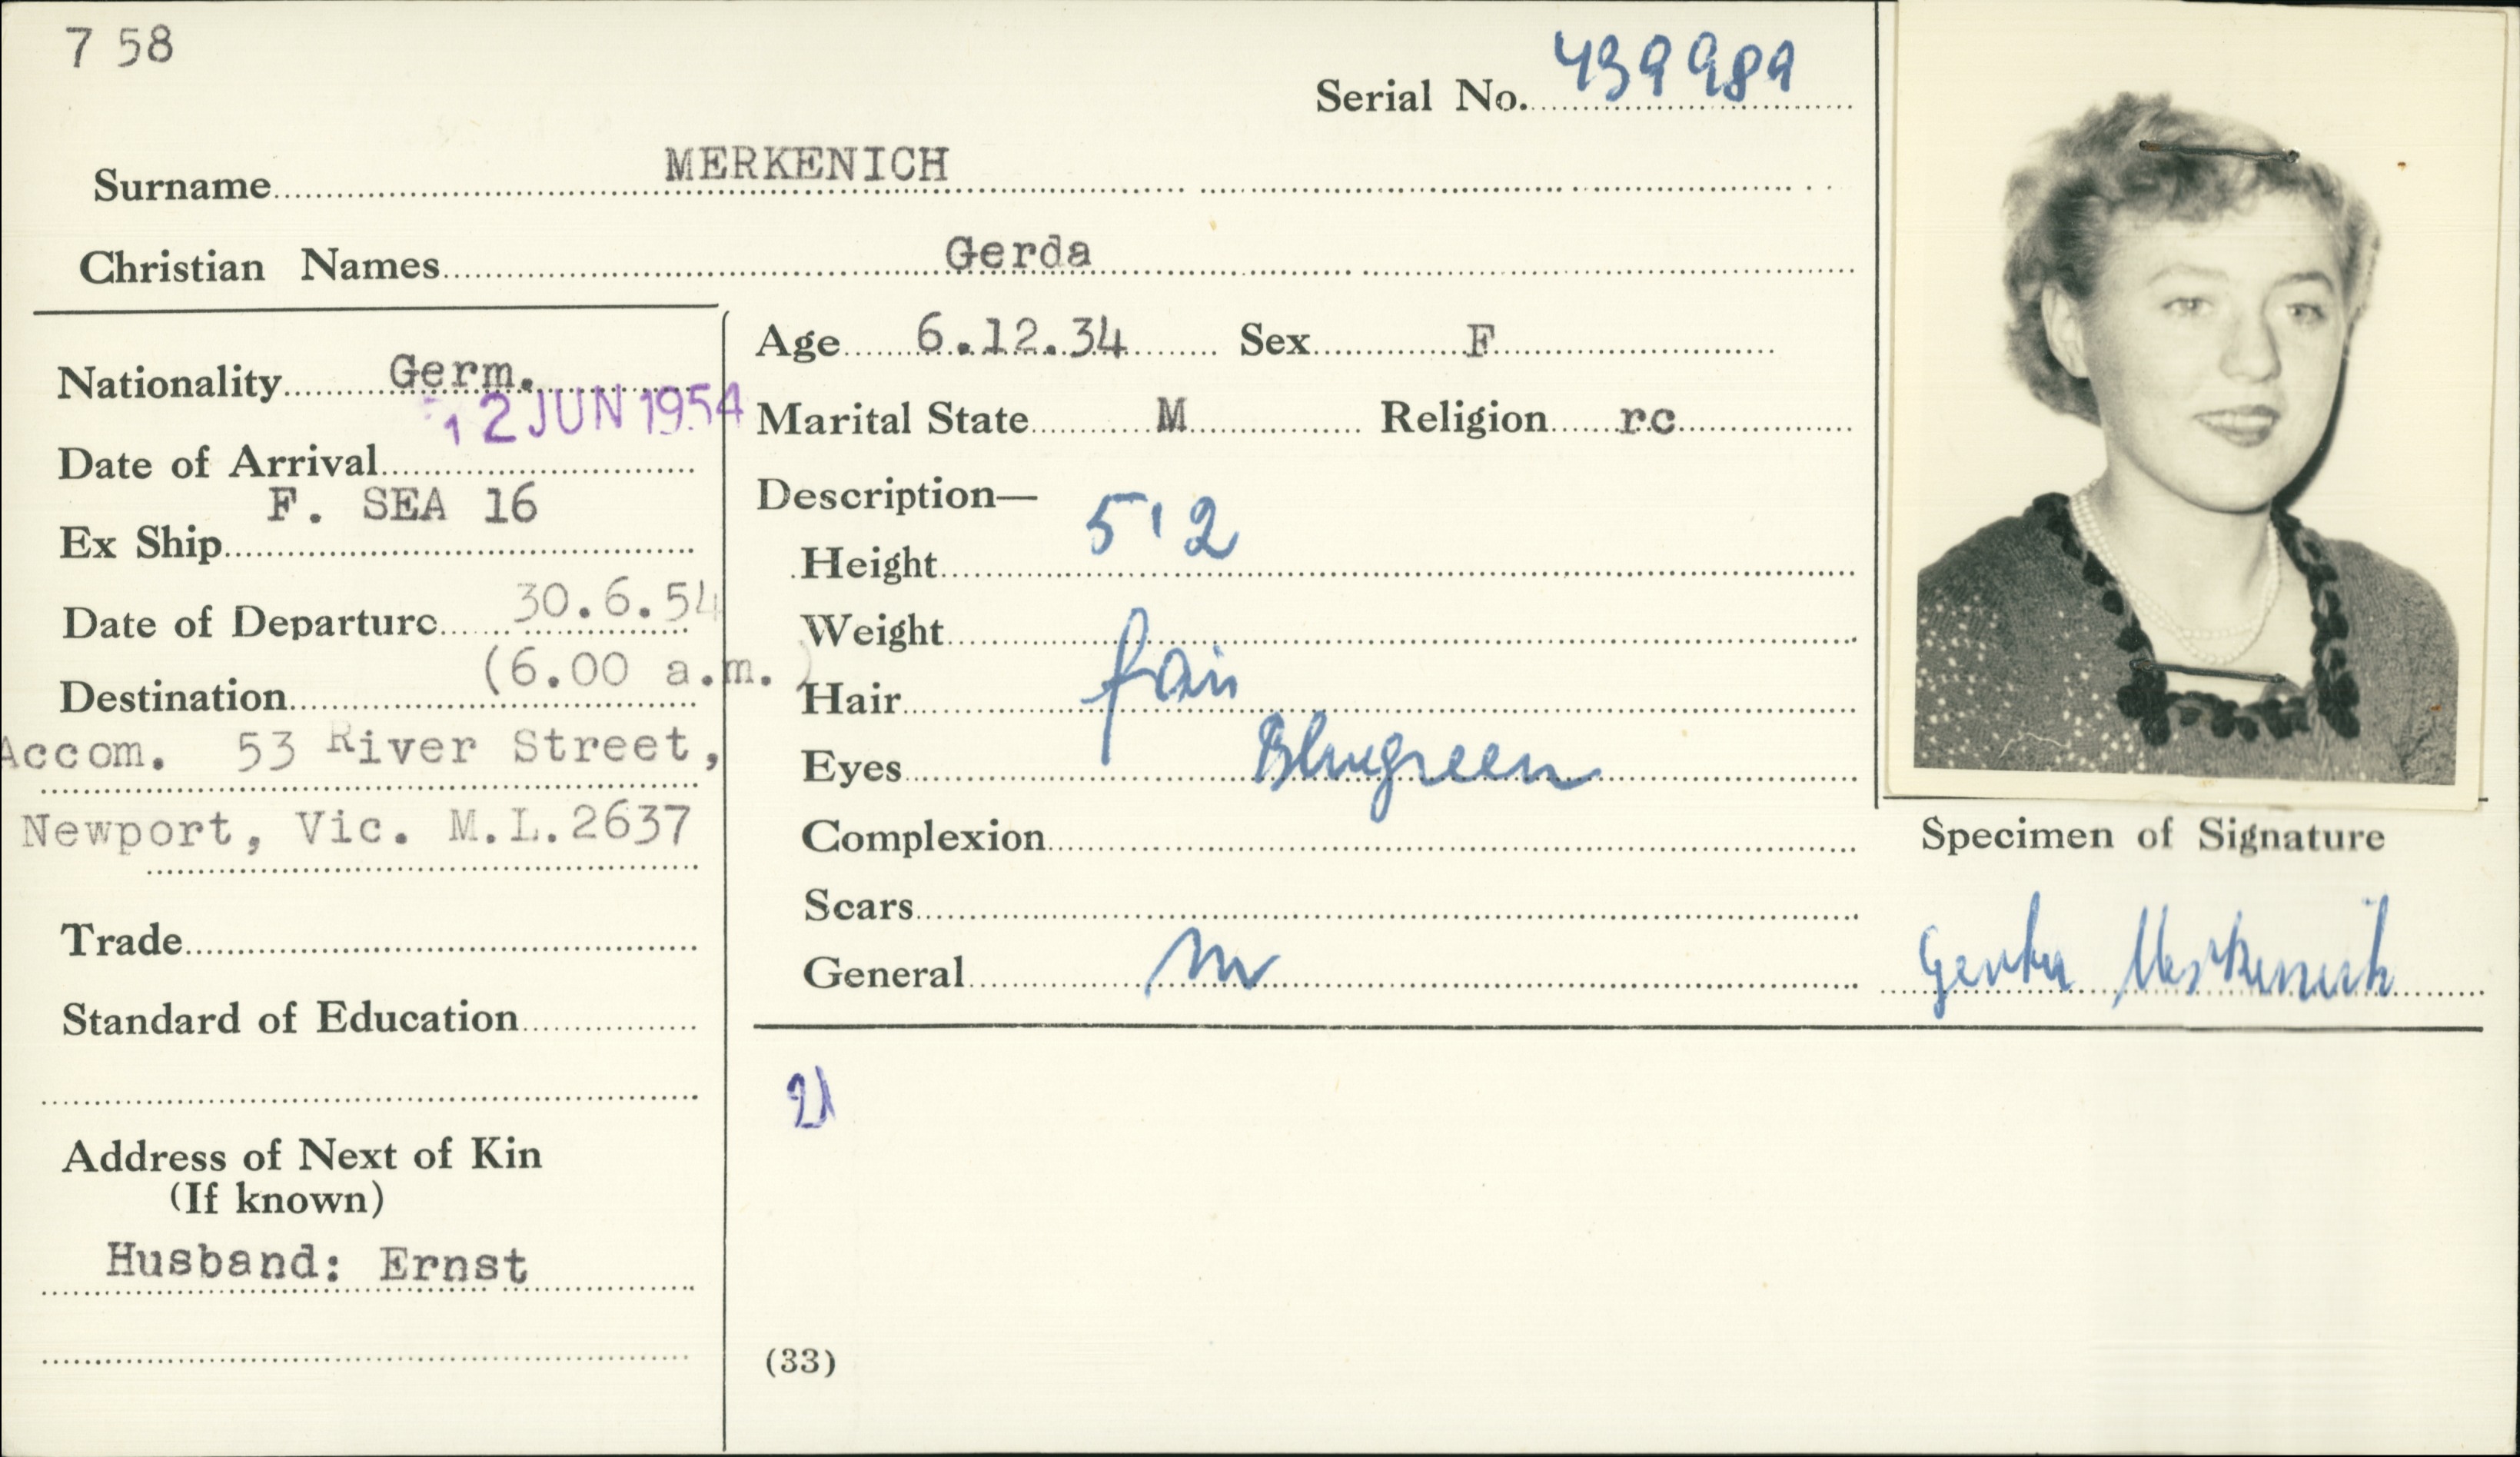 7 58
Serial No. 439989
Surname MERKENICH
Christian Names Gerda
Nationality Germ.
Date of Arrival 12 JUN 1954
Ex Ship F. SEA 16
Date of Departure 30.6.54
(6.00 a.m.)
Destination
Accom. 53 River Street,
Newport, Vic. M.L.2637
Trade
Standard of Education
Address of Next of Kin
(If known)
Husband: Ernst
Age 6.12.34 Sex F
Marital State M Religion rc
Description—
Height 5'2
Weight
Hair fair
Eyes Bluegreen
Complexion
Scars
General
(33)
Specimen of Signature
Gerda Merkenich